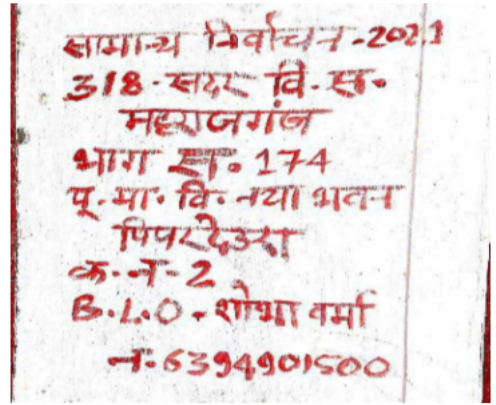 सामान्य निर्वाचन-2021
318-सदर वि. स.
महराजगंज
भाग स. 174
पू. मा. वि. नया भवन
पिपरदेउरा
क. न-2
B.L.O - शोभा वर्मा
न. 6394901500